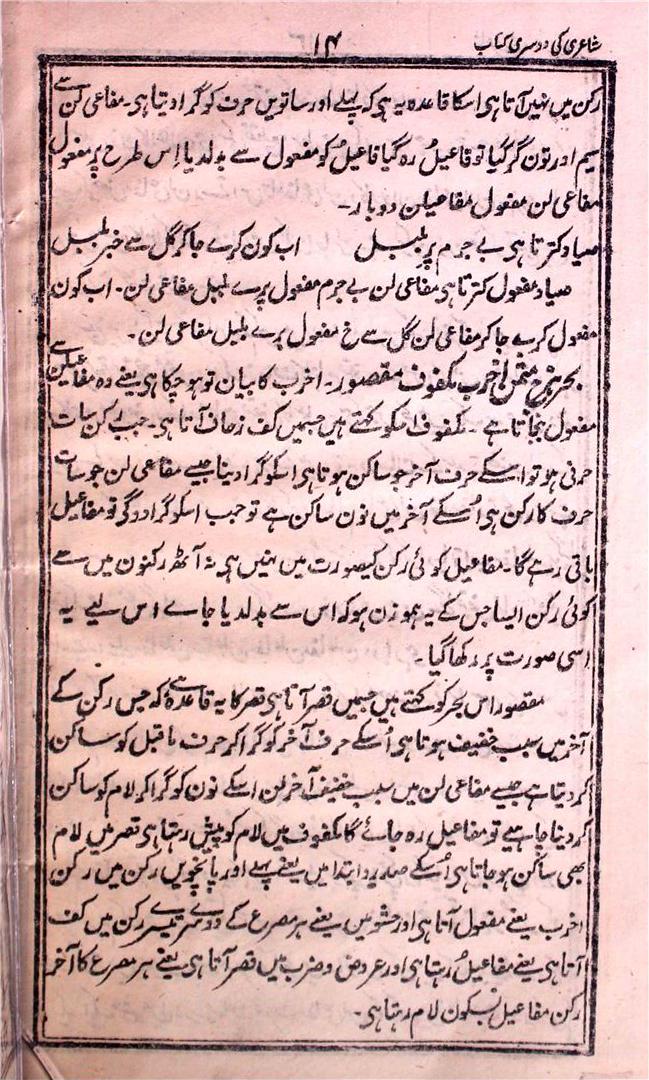 شاعری کی دوسری کتاب
۱۴
رکن میں نہیں آتا ہی اسکا قاعدہ یہ ہی کہ پہلے اور ساتویں حرف کو گرا دیتا ہی۔ مفاعی لن سے
میم اور نون گر گیا تو فاعیلُ رہ گیا فاعیلُ کو مفعول سے بدلدیا اِس طرح پر مفعول
مفاعی لن مفعول مفاعیلن دوبار۔
صیاد کترتا ہی بے جرم پرِ بلبل اب کون کرے جاکر گل سے خبرِ بلبل
صیاد مفعول کترتا ہی مفاعی لن بے جرم مفعول پرے بلبل مفاعی لن۔ اب کون
مفعول کرے جاکر مفاعی لن گل سے خ مفعول برے بلبل مفاعی لن۔
بحر ہزج مثمن اخرب مکفوف مقصور۔ اخرب کا بیان تو ہو چکا ہی یعنے وہ مفاعیلن سے
مفعول بنجاتا ہے۔ مکفوف اسکو کہتے ہیں جسمیں کف زحاف آتا ہی۔ جب رکن سات
حرفی ہو تو اسکے حرف آخر جو ساکن ہوتا ہی اسکو گرا دینا جیسے مفاعی لن جو سات
حرف کا رکن ہی اُسکے آخر میں نون ساکن ہے تو جب اسکو گرا دوگے تو مفاعیل
باقی رہے گا۔ مفاعیل کوئی رکن کیصورت میں نہیں ہی نہ آٹھ رکنون میں سے
کوئی رکن ایسا جس کے یہ ہموزن ہو کہ اس سے بدلدیا جاے اس لیے یہ
اسی صورت پر رکھا گیا۔
مقصور اس بحر کو کہتے ہیں جسمیں قصر آتا ہی قصر کا یہ قاعدہ ہے کہ جس رکن کے
آخر میں سبب خفیف ہوتا ہی اُسکے حرف آخر کو گرا کر حرف ماقبل کو ساکن
کر دیتا ہے جیسے مفاعی لن میں سبب خفیف آخر لن اسکے نون کو گرا کر لام کو ساکن
کر دینا چاہیے تو مفاعیل رہ جائے گا مکفوف میں لام کو پیش رہتا ہی قصر میں لام
بھی ساکن ہو جاتا ہی اُسکے صدر و ابتدا میں یعنے پہلے اور پانچویں رکن میں رکن
اخرب یعنے مفعول آتا ہی اور حشو میں یعنے ہر مصرع کے دوسرے تیسرے رکن میں کف
آتا ہی یعنے مفاعیلُ رہتا ہی اور عروض و ضرب میں قصر آتا ہی یعنے ہر مصرع کا آخر
رکن مفاعیل بسکون لام رہتا ہی۔